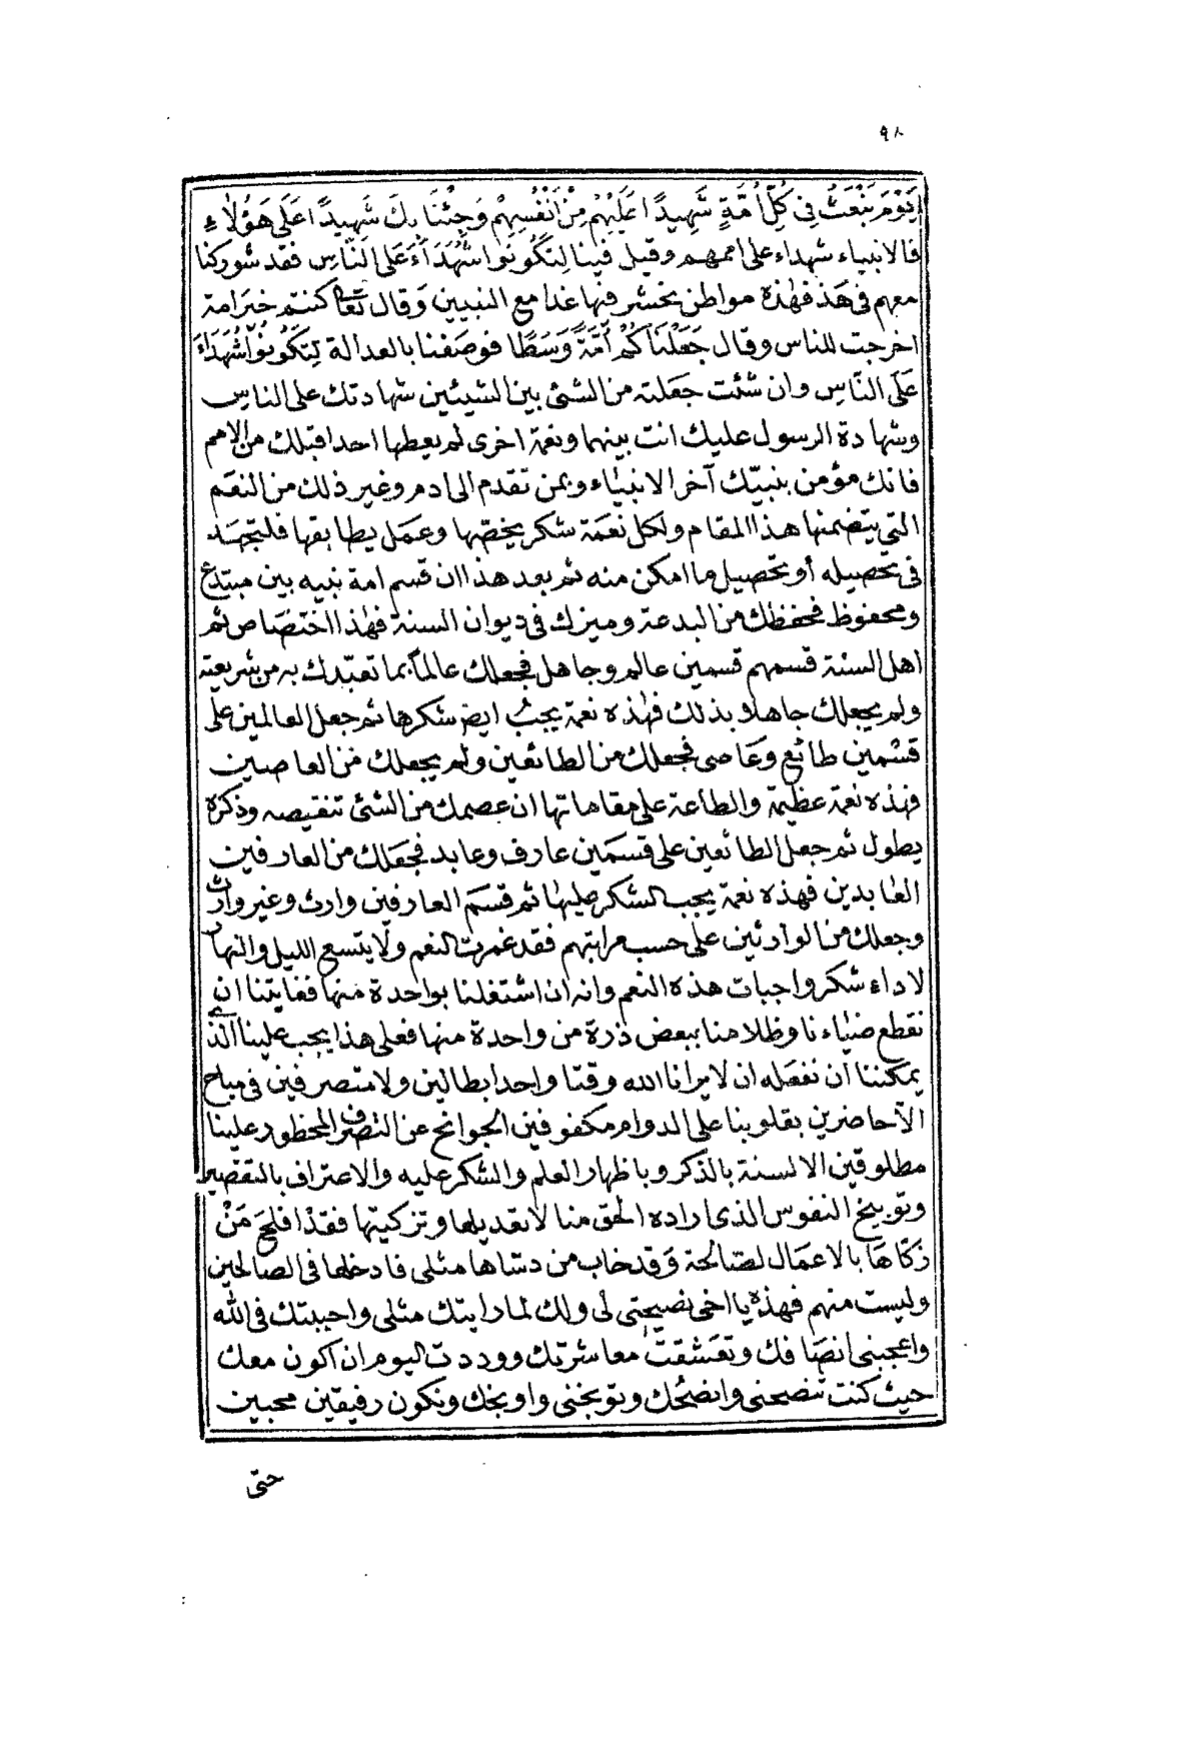 ٩٨
وَيَوْمَ نَبْعَثُ فِي كُلِّ أُمَّةٍ شَهِيدًا عَلَيْهِمْ مِنْ أَنْفُسِهِمْ وَجِئْنَا بِكَ شَهِيدًا عَلَى هَؤُلَاءِ
فالانبياء شهداء على اممهم وقيل فينا لِتَكُونُوا شُهَدَاءَ عَلَى النَّاسِ فقد شوركنا
معهم في هذ فهذه مواطن نحشر فيها غدا مع النبيين وَقال تعا كنتم خير امة
اخرجت للناس وقال جَعَلْنَاكُمْ أُمَّةً وَسَطًا فوصفنا بالعدالة لِتَكُونُوا شُهَدَاءَ
عَلَى النَّاسِ وان شئت جعلته من الشئ بين الشيئين شهادتك على الناس
وشهادة الرسول عليك انت بينهما ونعمة اخرى لم يعطها احدا قبلك من الامم
فانك مؤمن بنبيّك آخر الانبياء وبمن تقدم الى ادم وغير ذلك من النعم
التي يتضمنها هذا المقام ولكل نعمة شكر يخصّها وعمل يطابقها فلتجهد
في تحصيله أو تحصيل ما امكن منه ثم بعد هذا ان قسم امة نبيه بين مبتدع
ومحفوظ فحفظك من البدعة وميزك في ديوان السنة فهذا اختصاص ثم
اهل السنة قسمهم قسمين عالم وجاهل فجعلك عالماً بما تعبّدك به من شريعته
ولم يجعلك جاهلا بذلك فهذه نعمة يجب ايض شكرها ثم جعل العالمين على
قسمين طائع وعاصى فجعلك من الطائعين ولم يجعلك من العاصين
فهذه نعمة عظيمة والطاعة على مقاماتها ان عصمك من الشئ تنقيصه وذكره
يطول ثم جعل الطائعين على قسمين عارف وعابد فجعلك من العارفين
العابدين فهذه نعمة يجب الشكر عليها ثم قسم العارفين وارث وغير وارث
وجعلك من الوارثين على حسب مراتبهم فقد غمرت النعم ولا يتسع الليل والنهار
لاداء شكر واجبات هذه النعم وانه ان اشتغلنا بواحدة منها فغايتنا ان
نقطع ضياءنا وظلامنا ببعض ذرة من واحدة منها فعلى هذا يجب علينا الذي
يمكننا أن نفعله ان لا يرانا الله وقتا واحدا بطالين ولا متصرفين في مباح
الآ حاضرين بقلوبنا على الدوام مكفوفين الجوانح عن التصرف المحظور علينا
مطلوقين الالسنة بالذكر وباظهار العلم والشكر عليه والاعتراف بالتقصير
وتوبيخ النفوس الذى اراده الحق منا لا تعديلها وتزكيتها فقد افلح مَنْ
زكّاها بالاعمال الصالحة وَقد خاب من دسّاها مثلى فادخلها في الصالحين
وليست منهم فهذه يا اخى نصيحتى لى ولك لما رايتك مثلى واحببتك في الله
واعجبنى انصافك وتعشقت معاشرتك ووددت اليوم ان اكون معك
حيث كنت تنصحنى وانصحك وتوبخنى واوبخك ونكون رفيقين محبين
حتّى